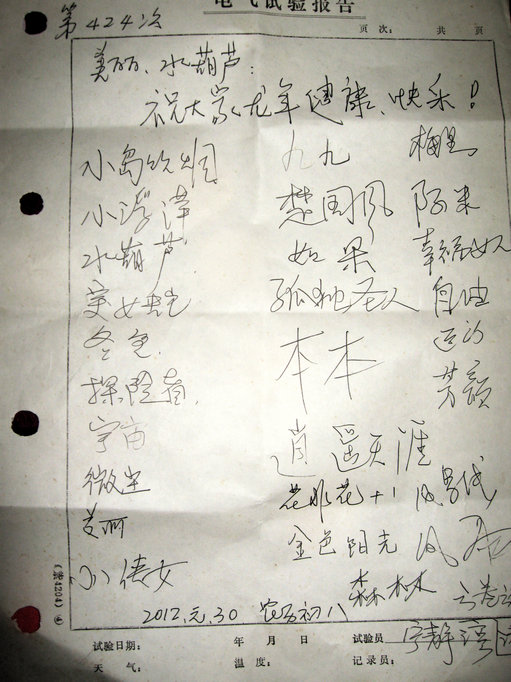 电气试验报告
第424次
页次: 共 页
美丽、水葫芦:
祝大家龙年健康、快乐!
小岛炊烟 九九 梅思
小浮萍 楚国风 阿米
水葫芦 如果 幸福女人
美女蛇 孤独圣人 自由
冬色 本本 远的
探险者 芳颜
宇宙 逍遥天涯
微尘 花非花+1
美丽 金色阳光
小侠女 森林木
2012.元.30 农历初八
(常4204)
试验日期: 年 月 日 试验员 宁静
天气: 温度: 记录员: